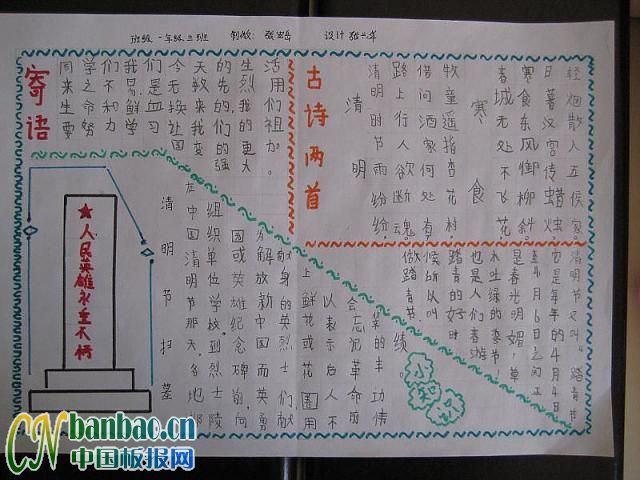 班级 一年级三班 制做: 设计
寄语
同学们,我们今天的生活
来之不易,是无数先烈用
生命和鲜血换来的,我们
要努力学习,我们的祖
国变更加
强大。
古诗两首
清明
清明时节雨纷纷,
路上行人欲断魂。
借问酒家何处有,
牧童遥指杏花村。
寒食
春城无处不飞花,
寒食东风御柳斜。
日暮汉宫传蜡烛,
轻烟散入五侯家。
人民英雄永垂不朽
清明节扫墓
在中国清明节那天,各地都
组织单位学校到烈士陵
园或英雄纪念碑前,向
为解放新中国而英勇
献身的英烈士们,献
上鲜花或花圈用
以表示后人不
会忘记革命前
辈的丰功
绩。
小知识
清明节又叫踏青节
它是每年的4月4日
至4月6日之间正
是春光明媚,草
木吐绿的季节,
也是人们春游
踏青的好时
候所以叫
做踏青节。
CN banbao.cn
中国板报网